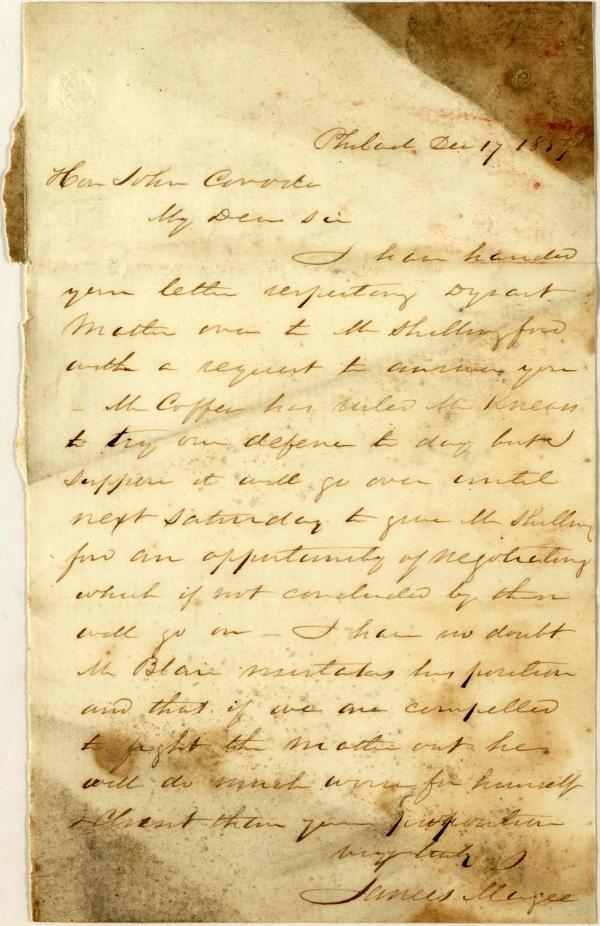 Philad Dec 17 1857
Hon John Covode
My Dear Sir
I have handed
your letter respecting Dysart
Matter over to Mr Shilling ford
with a request to answer you
- Mr Coffee has ruled Mr Kneass
to try our defence to day but I
suppose it will go over until
next Saturday to give Mr Shilling
ford an opportunity of negotiating
which if not concluded by then
will go on - I have no doubt
Mr Blair mistakes his position
and that if we are compelled
to fight the matter out he
will do much worse for himself
& Client than your proposition
very truly
James Magee